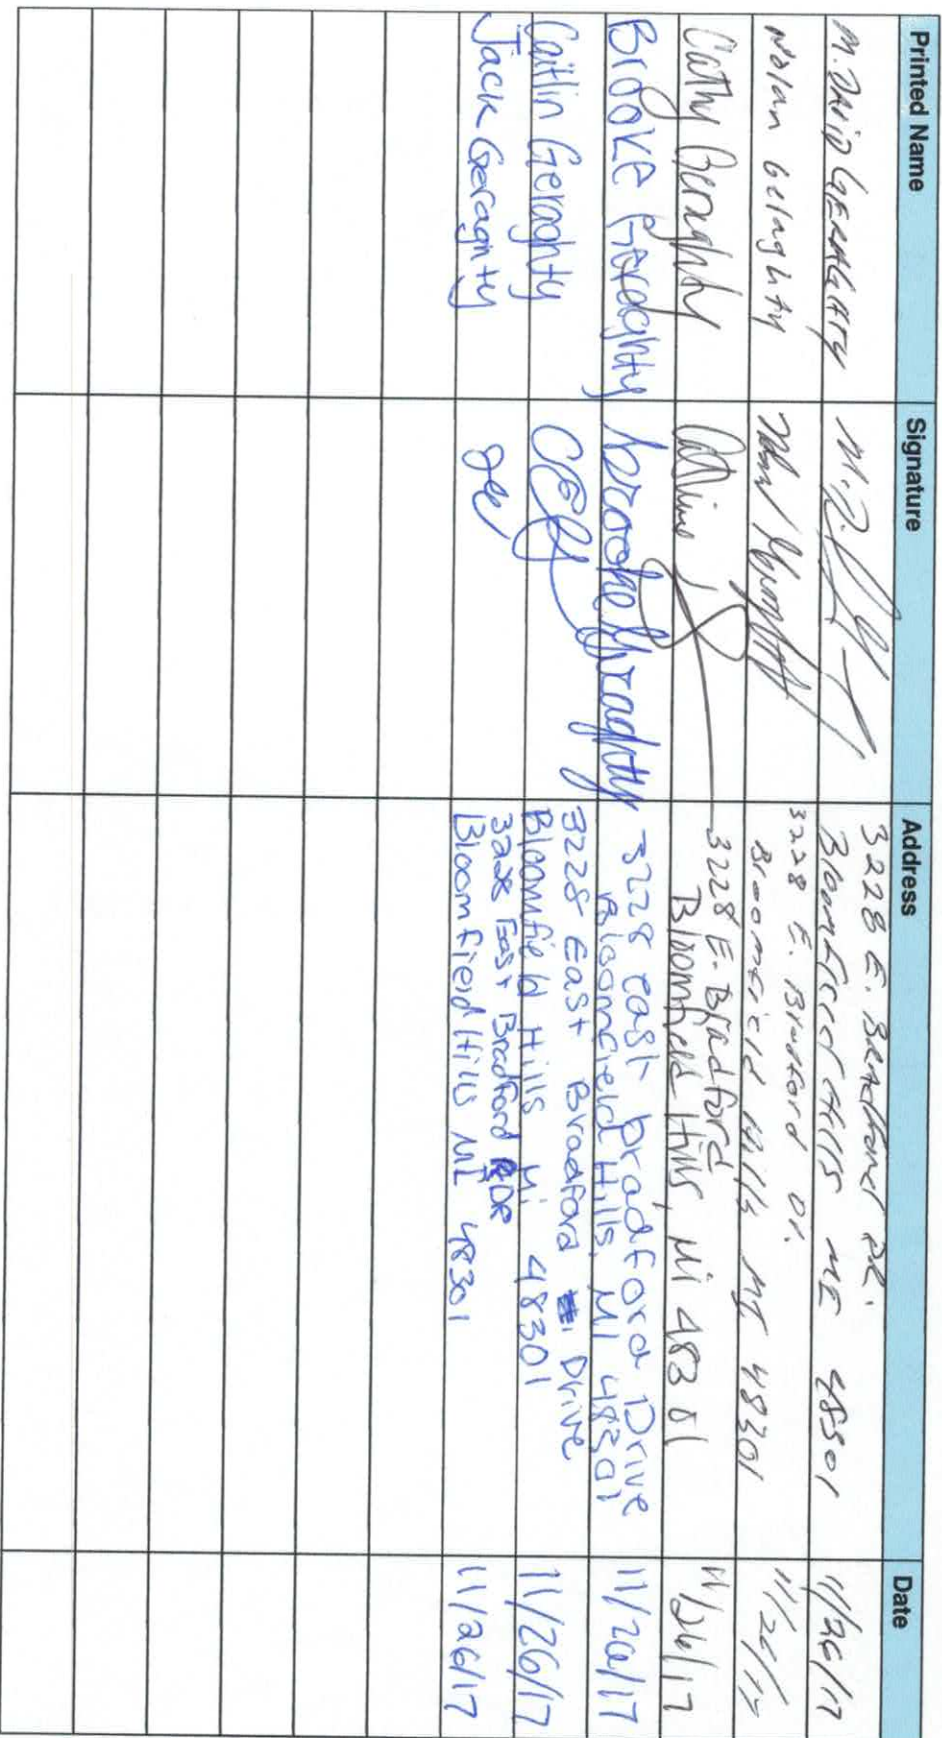 Printed Name Signature Address Date
M. DAVID GERAGHTY 3228 E. Bradford DR. 11/26/17
Bloomfield Hills MI 48301
Nolan Geraghty 3228 E. Bradford Dr. 11/26/17
Bloomfield Hills MI 48301
Cathy Geraghty 3228 E. Bradford 11/26/17
Bloomfield Hills, Mi 48301
Brooke Geraghty brooke geraghty 3228 east bradford Drive 11/26/17
Bloomfield Hills, MI 48301
Caitlin Geraghty 3228 East Bradford Drive 11/26/17
Bloomfield Hills Mi 48301
Jack Geraghty 3228 East Bradford DR 11/26/17
Bloomfield Hills MI 48301